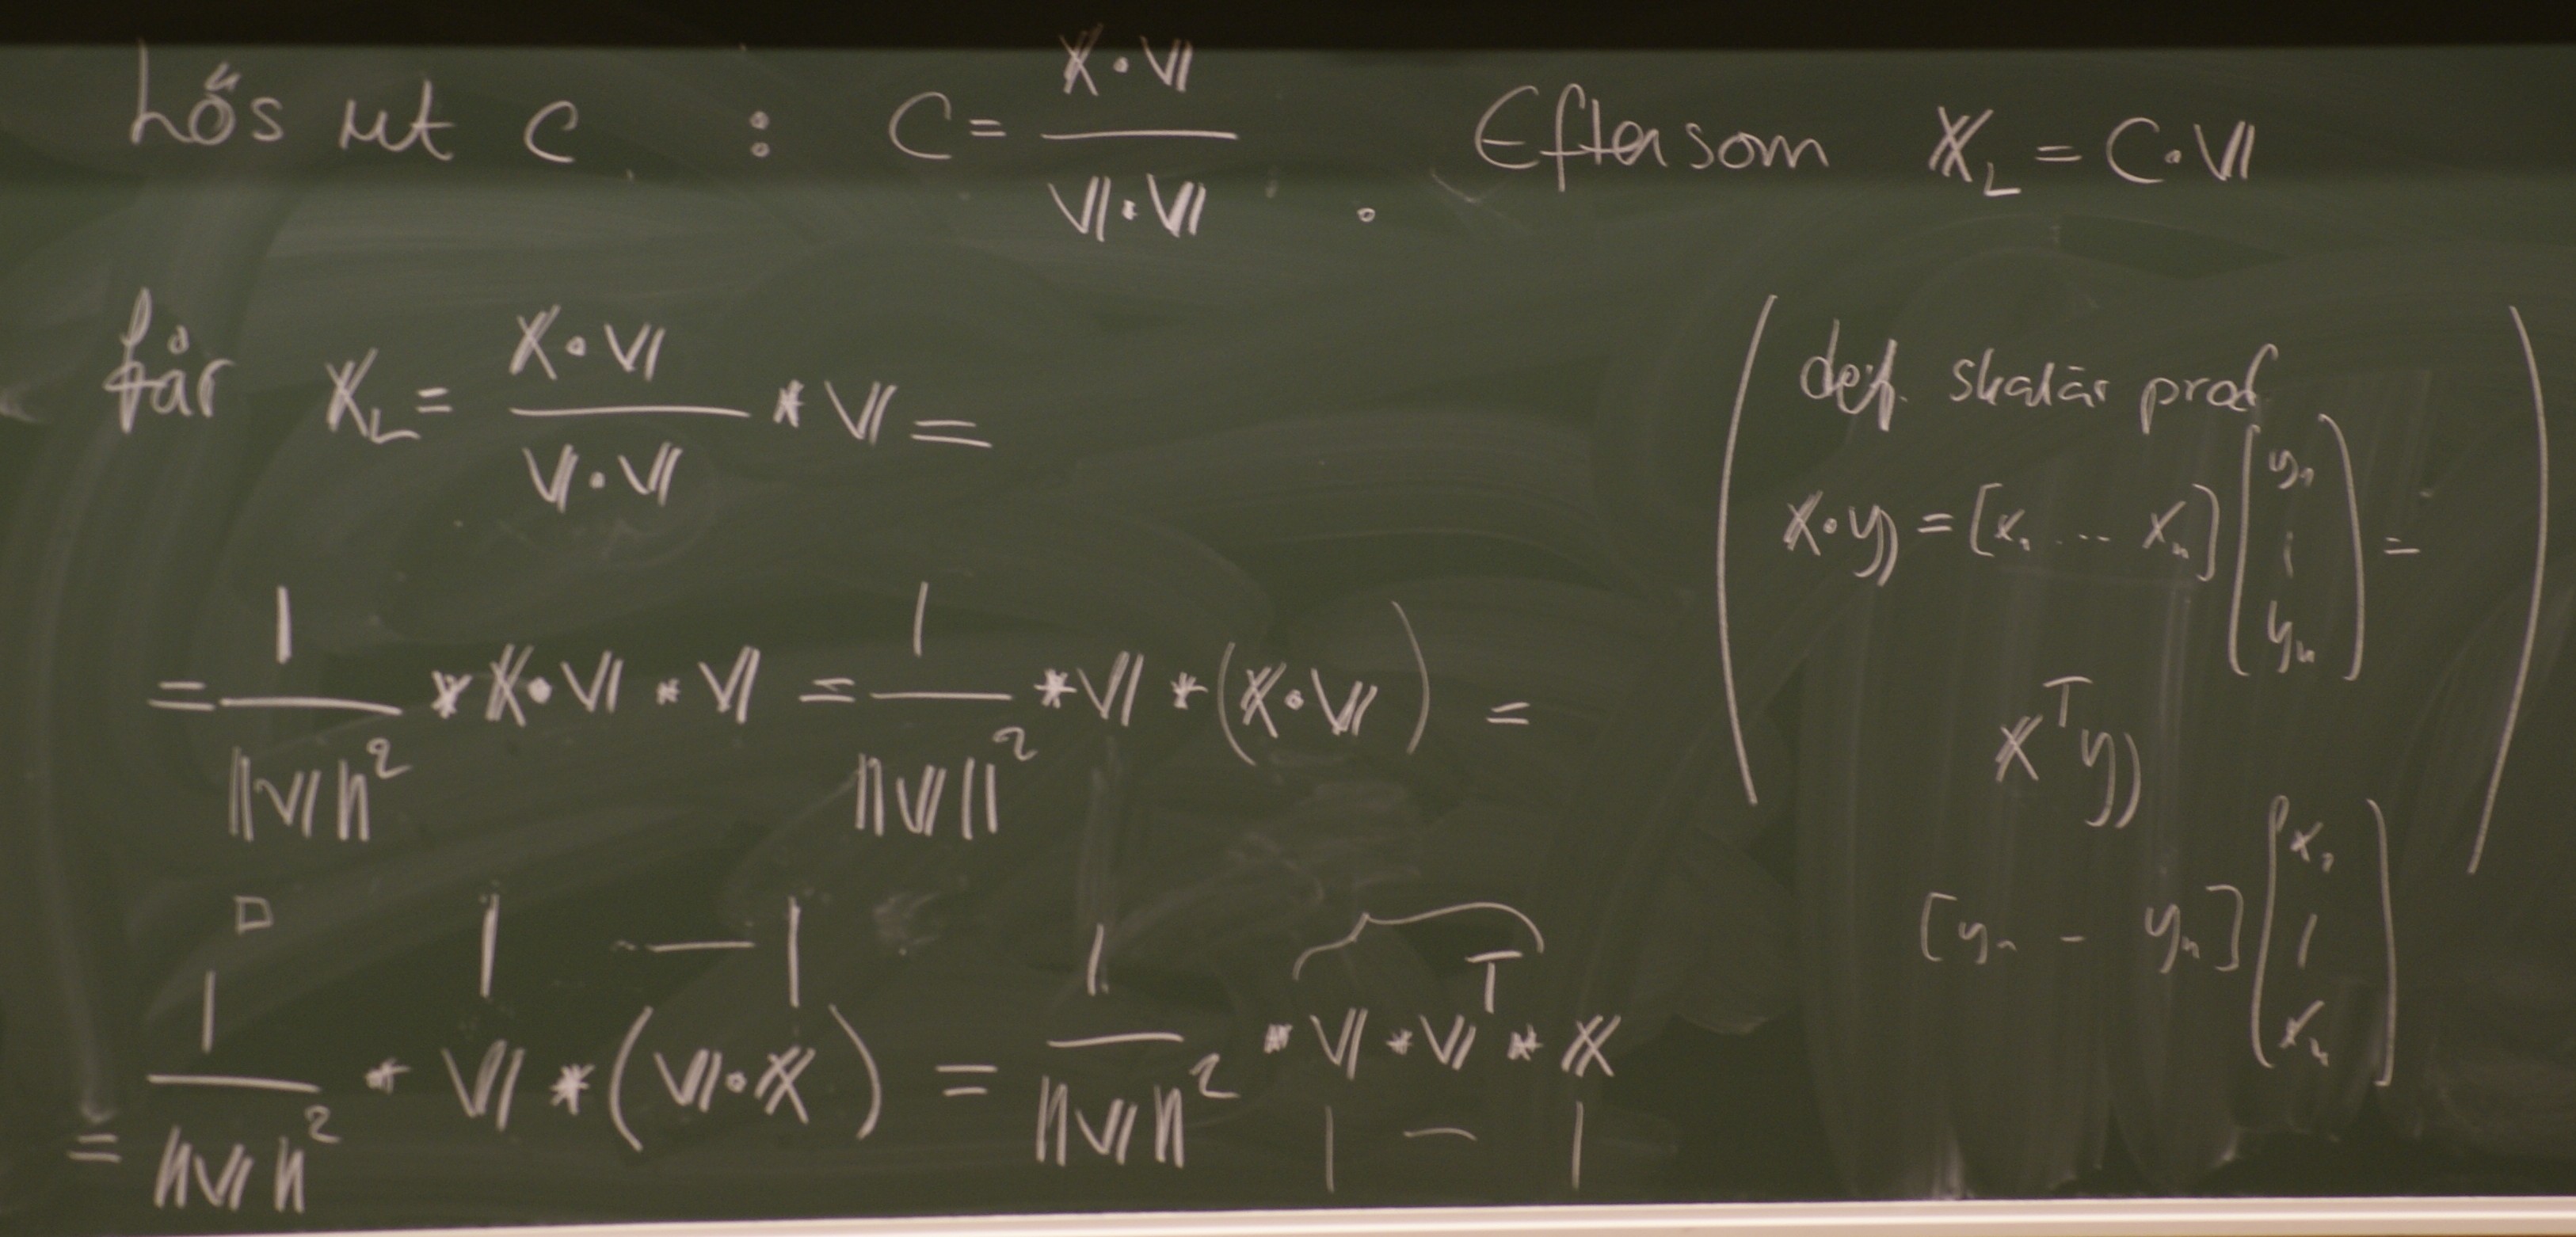 Lös ut C : C = 𝕏·𝕍 / 𝕍·𝕍 . Eftersom 𝕏_L = C·𝕍
får 𝕏_L = 𝕏·𝕍 / 𝕍·𝕍 * 𝕍 =
= 1 / ||𝕍||² * 𝕏·𝕍 * 𝕍 = 1 / ||𝕍||² * 𝕍 * (𝕏·𝕍) =
□ | — |
= 1 / ||𝕍||² * 𝕍 * (𝕍·𝕏) = 1 / ||𝕍||² * 𝕍 * 𝕍ᵀ * 𝕏
| — |
def. skalär prod
𝕏·𝕪 = [x₁ ... xₙ] [y₁ ⋮ yₙ] =
𝕏ᵀ𝕪
[y₁ - yₙ] [x₁ | xₙ]